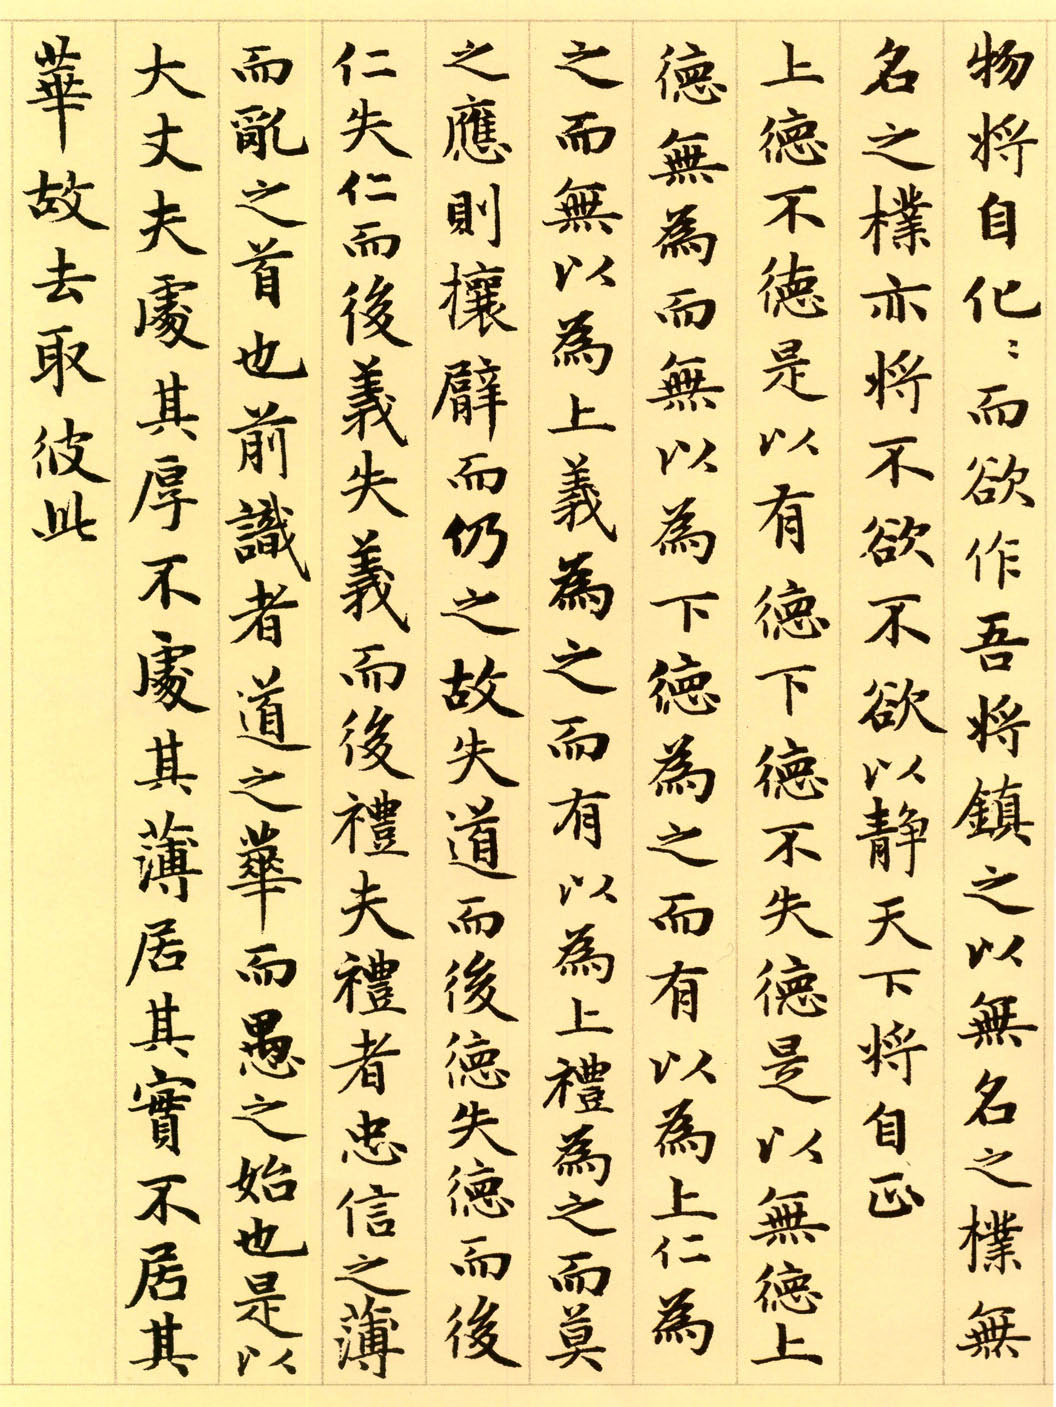 物将自化：而欲作吾将鎮之以無名之樸無
名之樸亦将不欲不欲以静天下将自正
上德不德是以有德下德不失德是以無德上
德無為而無以為下德為之而有以為上仁為
之而無以為上義為之而有以為上禮為之而莫
之應則攘臂而仍之故失道而後德失德而後
仁失仁而後義失義而後禮夫禮者忠信之薄
而亂之首也前識者道之華而愚之始也是以
大丈夫處其厚不處其薄居其實不居其
華故去取彼此